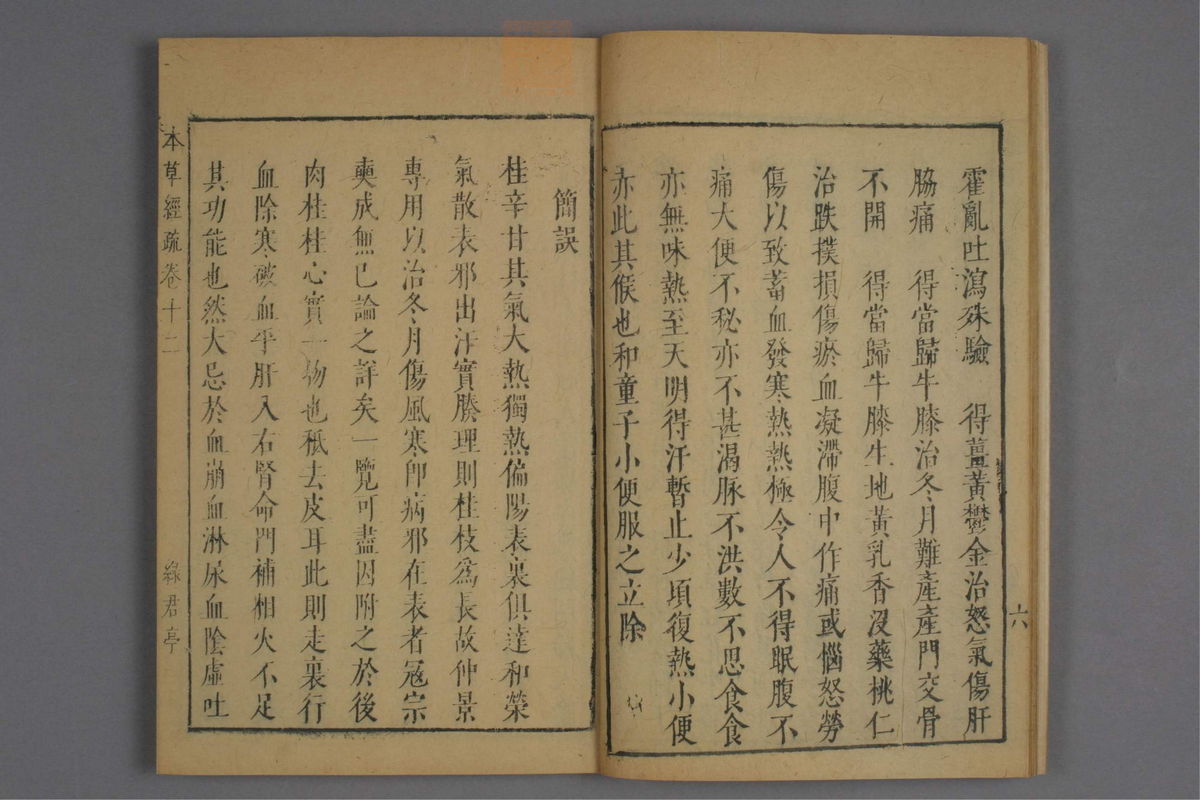 六
霍亂吐瀉殊驗　得薑黃鬱金治怒氣傷肝
脇痛　得當歸牛膝治冬月難產產門交骨
不開　得當歸牛膝生地黃乳香沒藥桃仁
治跌撲損傷瘀血凝滯腹中作痛或惱怒勞
傷以致蓄血發寒熱熱極令人不得眠腹不
痛大便不秘亦不甚渴脉不洪數不思食食
亦無味熱至天明得汗暫止少頃復熱小便
亦此其候也和童子小便服之立除
簡誤
桂辛甘其氣大熱獨熱偏陽表裏俱達和榮
氣散表邪出汗實腠理則桂枝爲長故仲景
專用以治冬月傷風寒卽病邪在表者冦宗
奭成無已論之詳矣一覽可盡因附之於後
肉桂桂心實一物也秪去皮耳此則走裏行
血除寒破血平肝入右腎命門補相火不足
其功能也然大忌於血崩血淋尿血陰虛吐
本草經疏卷十二
綠君亭